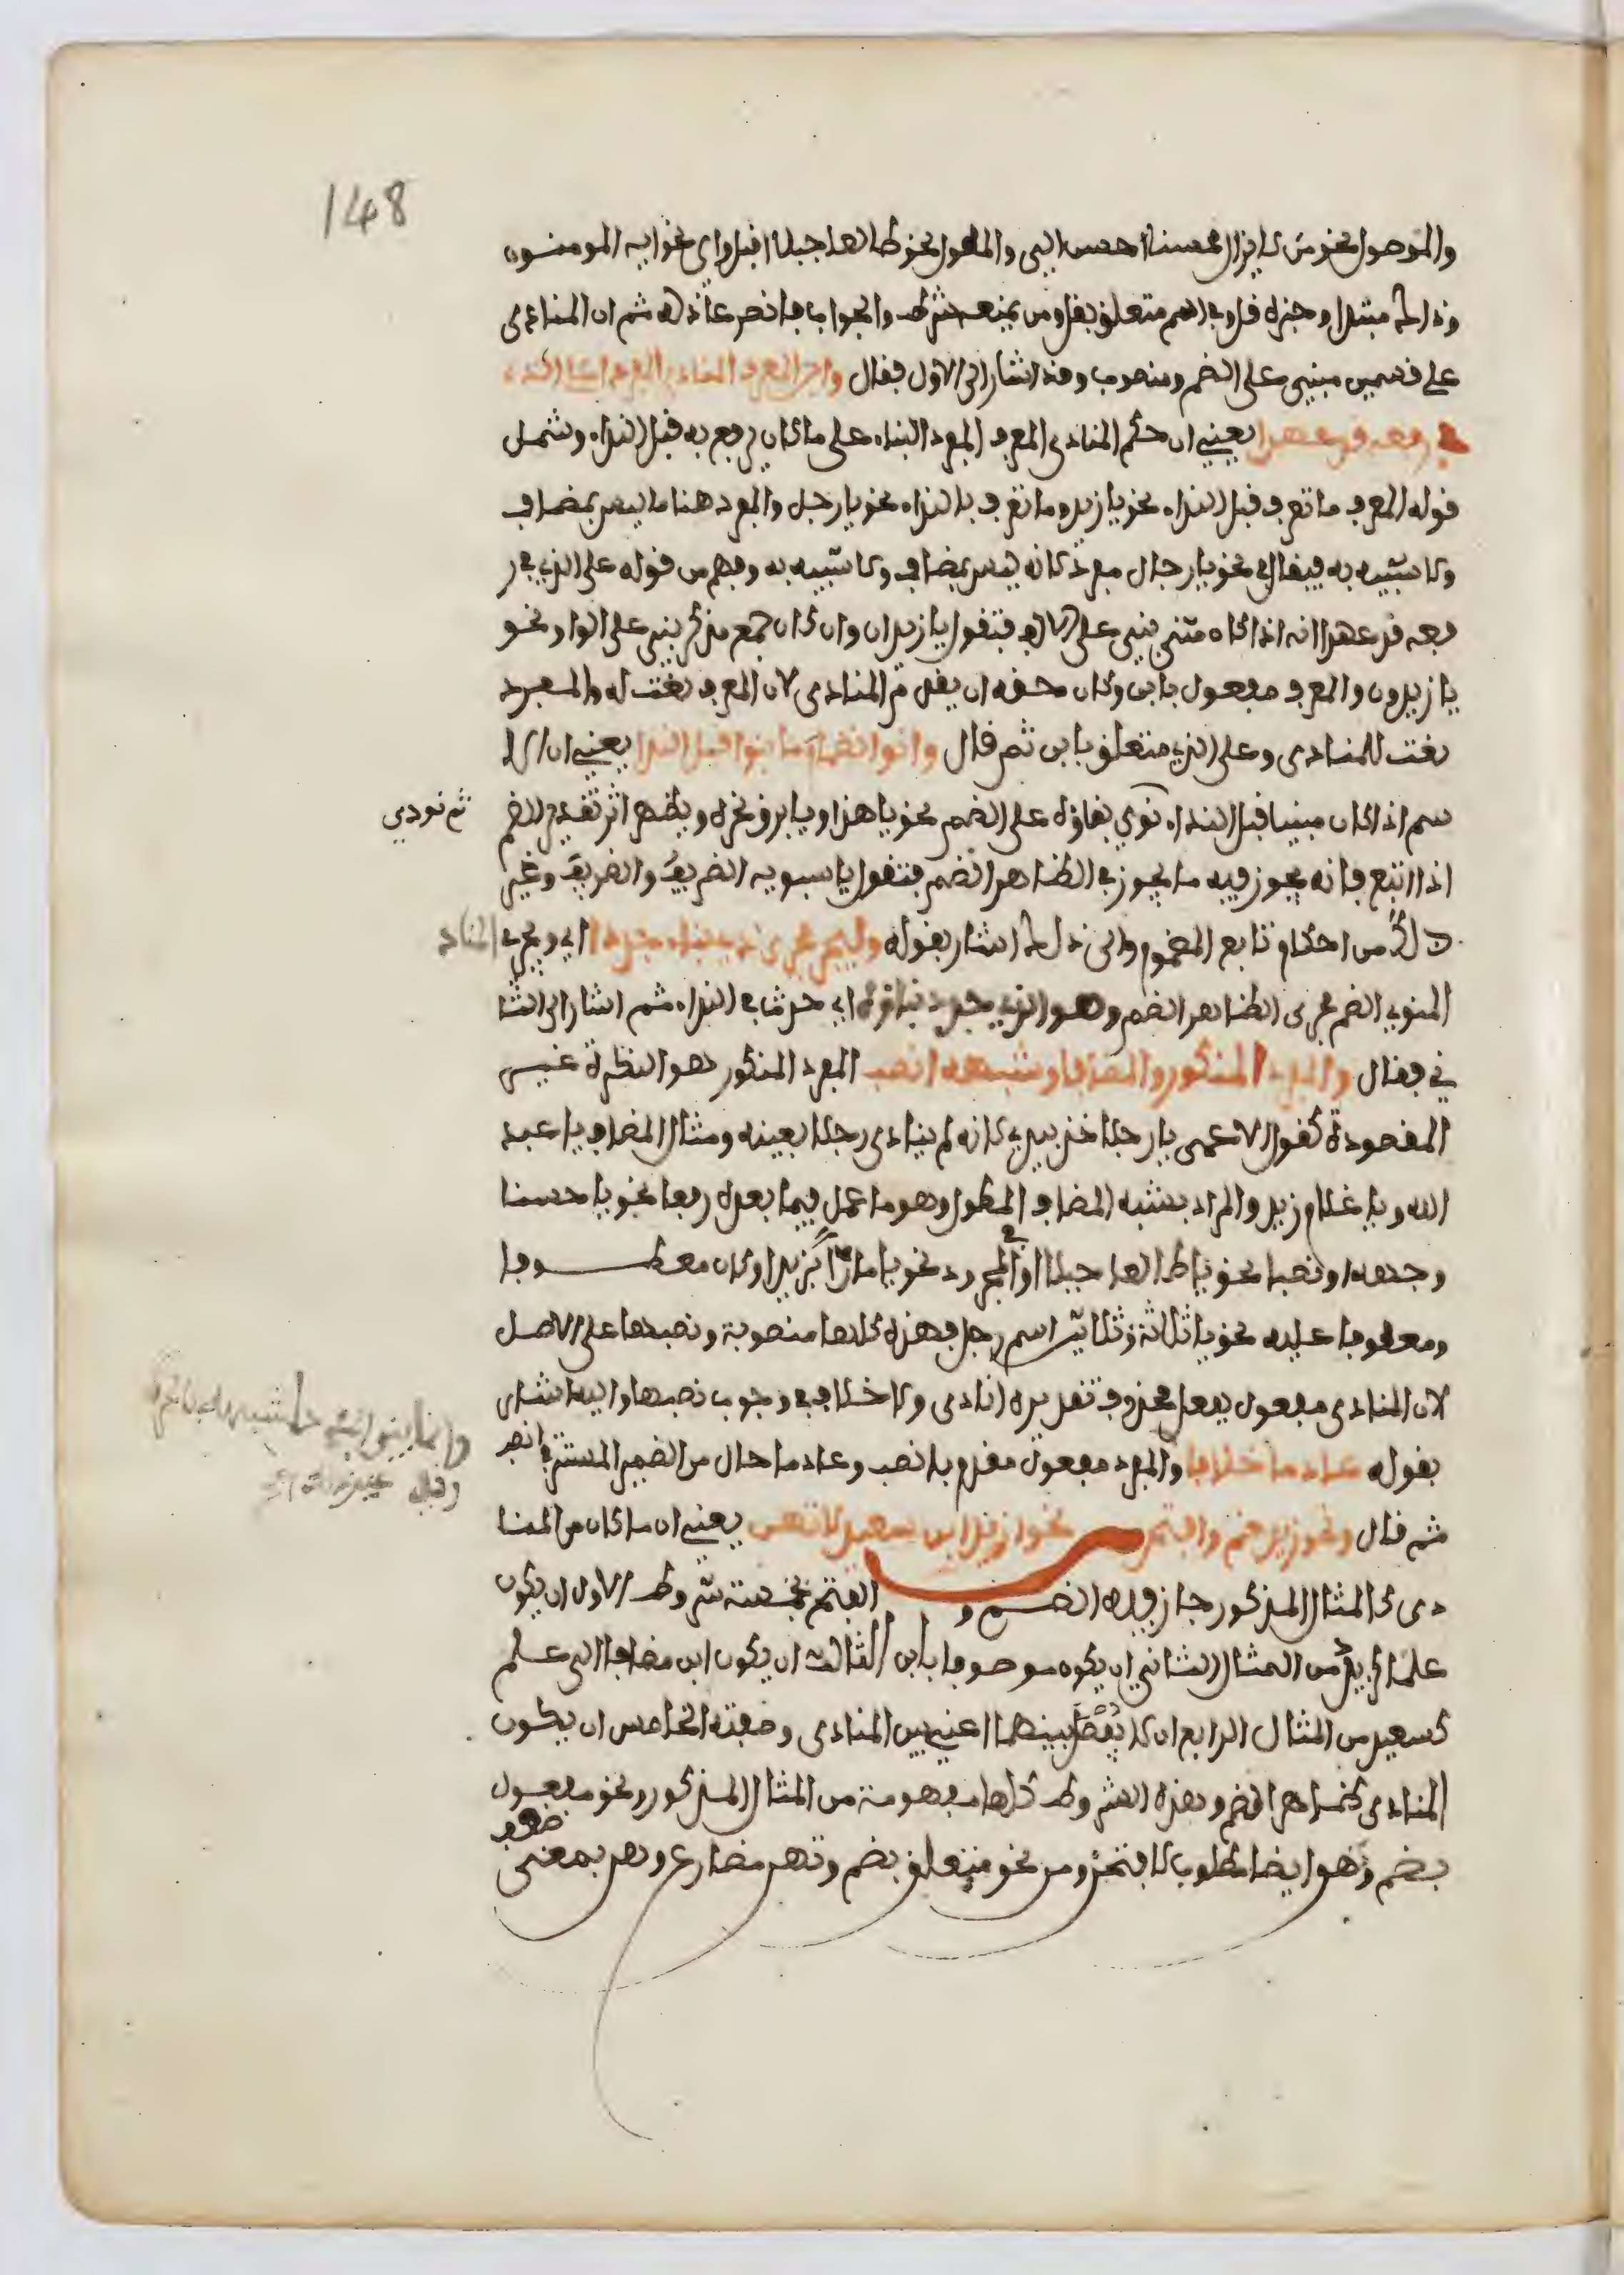 148
والموصول نحو من لا يزال محسنا احسن الي والمطول نحو طالعا جبلا اقبل واي نحو ايه المومنون
وذلك مبتدا وخبره قل وفي اسم متعلق بقل ومن يمنعه شرط والجواب فانصر عاذله ثم ان المنادى
على قسمين مبني على الضم ومنصوب وقد اشار الى الاول فقال وابن المعرف المنادى المفردا على الذي
في رفعه قد عهدا يعني ان حكم المنادى المعرف المفرد البناء على ما كان يرفع به قبل النداء وشمل
قوله المعرف ما تعرف قبل النداء نحو يا زيد وما تعرف بالنداء نحو يا رجل والمفرد هنا ما ليس بمضاف
ولا شبيه به فيقال في نحو يا رجال مفرد لانه ليس بمضاف ولا شبيه به وفهم من قوله على الذي في ر
فعه قد عهدا انه اذا كان مثنى بني على الالف فتقول يا زيدان وان كان جمع مذكر بني على الواو نحو
يا زيدون والمعرف مفعول بابن وكان حقه ان يقدم المنادى لان المعرف نعت له والمفرد
نعت للمنادى وعلى الذي متعلق بابن ثم قال وانو انضمام ما بنوا قبل الندا يعني ان الا
سم اذا كان مبنيا قبل النداء نوي بناؤه على الضم نحو يا هذا ويا برق نحره ويظهر اثر تقدير الضم
ثم نودي
اذا اتبع فانه يجوز فيه ما يجوز في الظاهر الضم فتقول يا سبويه الظريفُ والظريفَ وغير
ذلك من احكام تابع المضموم والى ذلك اشار بقوله وليجر مجرى ذي بناء جددا اي ويجري المناد
المنوي الضم مجرى الظاهر الضم وهو الذي جدد بناؤه اي حدث في النداء ثم اشار الى الثا
ني فقال والمفرد المنكور والمضافا وشبهه انصب المفرد المنكور هو النكرة غير
المقصودة كقول الاعمى يا رجلا خذ بيدي لانه لم ينادي رجلا بعينه ومثال المضاف يا عبد
الله ويا غلام زيد والمراد بشبه المضاف المطول وهو ما عمل فيما بعده رفعا نحو يا حسنا
وجهه او نصبا نحو يا طالعا جبلا او في المجرور نحو يا مارّا بزيد او كان معطوفا
ومعطوفا عليه نحو يا ثلاثة وثلاثين اسم رجل فهذه كلها منصوبة ونصبها على الاصل
لان المنادى مفعول بفعل محذوف تقديره انادى ولا خلاف في وجوب نصبها واليه اشار
بقوله عادما خلافا والمفرد مفعول مقدم بانصب وعادما حال من الضمير المستتر في انصب
ثم قال ونحو زيد ضم وافتحن من نحو ازيد ابن سعيد لا تهن يعني ان ما كان من المنا
دى كالمثال المذكور جاز فيه الضم والفتح بخمسة شروط الاول ان يكون
علما كزيد من المثال الثاني ان يكون موصوفا بابن الثالث ان يكون ابن مضافا الى علم
كسعيد من المثال الرابع ان لا يفصل بينهما اعني بين المنادى وصفته الخامس ان يكون
المنادى كظاهر الضم وهذه الشروط كلها مفهومة من المثال المذكور ونحو مفعول
بضم وهو ايضا مطلوب لافتحن ومن نحو متعلق بضم وتهن مضارع وهن بمعنى
ضعف